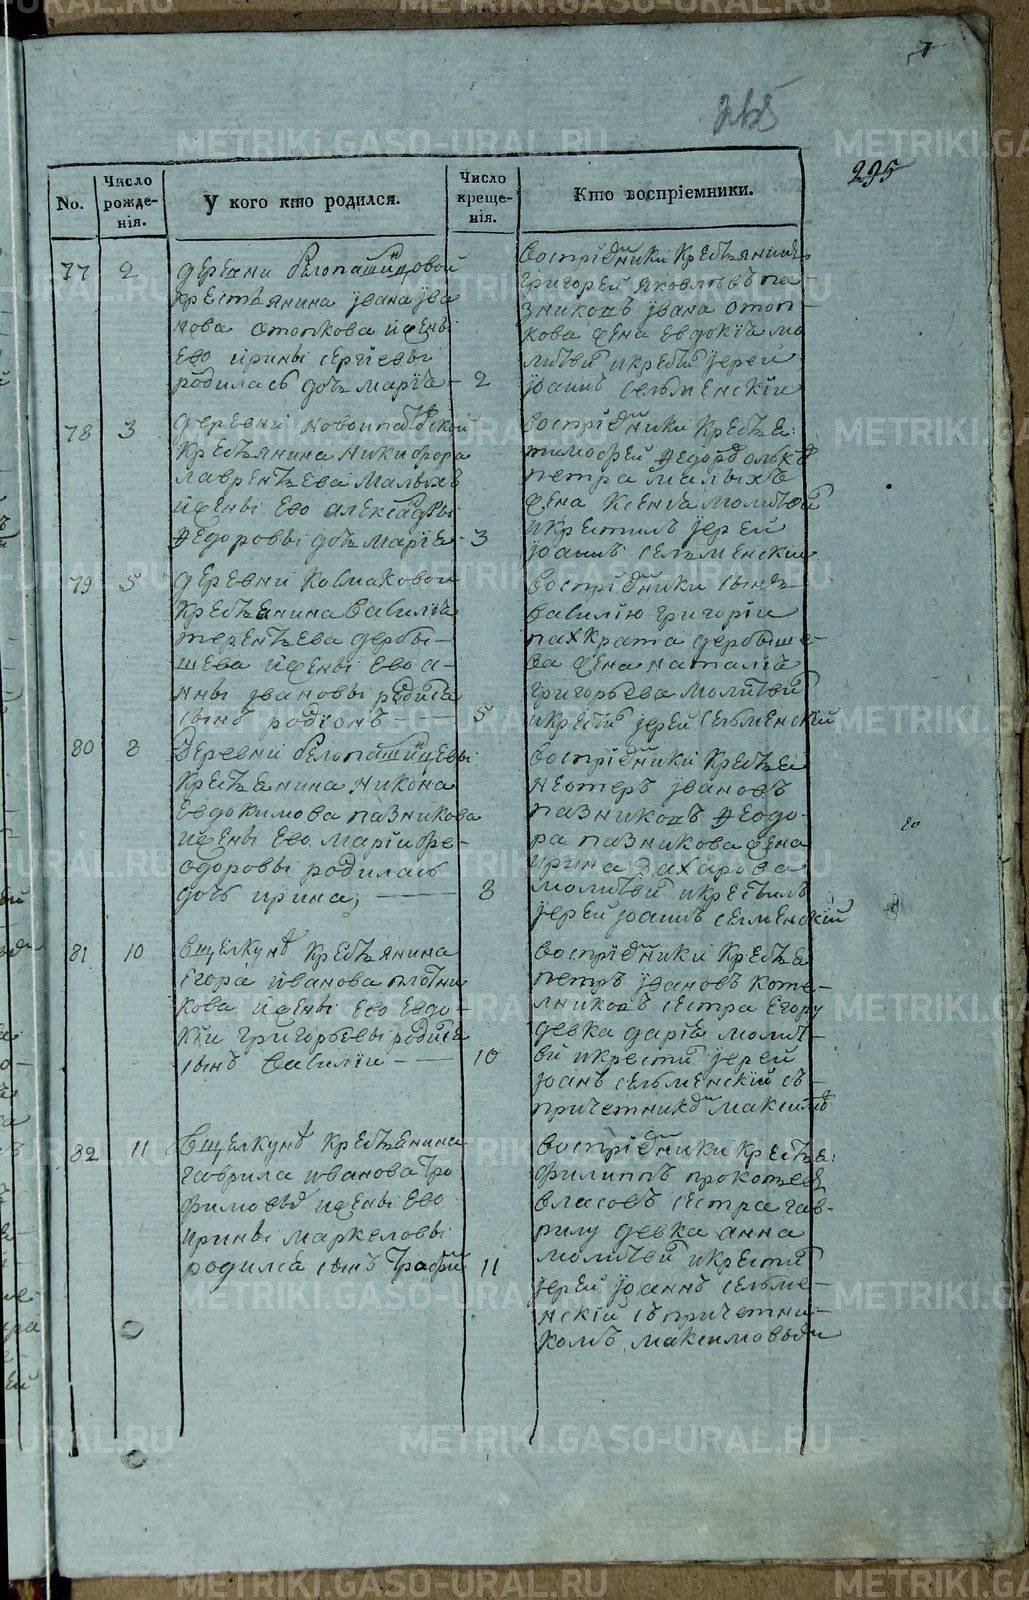 295
No.
Число рожденія.
У кого кто родился.
Число крещенія.
Кто воспріемники.
77
2
деревни
крестьянина Iвана Iва
нова Отопкова и жены
ево Ирины Сергиевы
родилась дочь Марiя
2
воспрiемники крестьянинъ
Григорей Яковлевъ па
зниковъ Iвана Отоп
кова жена Евдокия мо
литвил и крестил Iерей
Iоаннъ Сельменскiи
78
3
деревни
крестьянина Никифора
Лаврентьева Малыхъ
и жены ево Александры
Федоровы дочь Марiя
3
воспрiемники крестья:
Тимофей Федоров
Петра Малыхъ
жена Ксенiя молитвил
и крестилъ Iерей
Iоаннъ Сельменскiи
79
5
деревни Колмаковои
крестьянина Василия
Терентьева Дербы-
шева и жены ево А-
нны Iвановы родился
сынъ Родiонъ
5
воспрiемники сынъ
Василию Григорiи
Панкрата Дербыше-
ва жена Наталiя
Григорьева молитвил
и крестил Iерей Сельменскiй
80
8
Деревни
крестьянина Никона
Евдокимова Пазникова
и жены ево Марiи Фе-
одоровы родилась
дочь Ирина,
8
воспрiемники крестья
Нестеръ Iвановъ
Пазниковъ Феодо-
ра Пазникова жена
Ирина Захарова
молитвил и крестилъ
Iерей Iоаннъ Селменскiй
81
10
в Щелкунѣ крестьянина
Егора Иванова Плотни
кова и жены ево Евдо-
кии Григорьевы родился
сынъ Василiи
10
воспрiемники крестья
Петръ Iвановъ Коте-
лниковъ сестра Егору
девка Дарiя молит-
вил и крестил Iерей
Iоанъ Сельменскiй съ
причетником Максимов
82
11
в Щелкунѣ крестьянина
Гаврила Иванова Тро
фимова и жены ево
Ирины Маркеловы
родился сынъ Трофим
11
воспрiемники крестья:
Филиппъ Прокопьев
Власовъ сестра Гав-
рилу девка Анна
молитвил и крестил
Iерей Iоаннъ Сельме-
нскiй съ причетни-
комъ Максимовым
METRIKI.GASO-URAL.RU